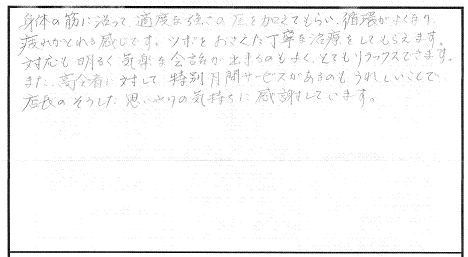 身体の筋に沿って、適度な強さの圧を加えてもらい、循環がよくなり、
疲れがとれる感じです。ツボをおさえた丁寧な治療をしてもらえます。
対応も明るく気楽な会話が出来るのもよく、とてもリラックスできます。
また、高令者に対して特別月間サービスがあるのもうれしいことで
店長のそうした思いやりの気持ちに感謝しています。